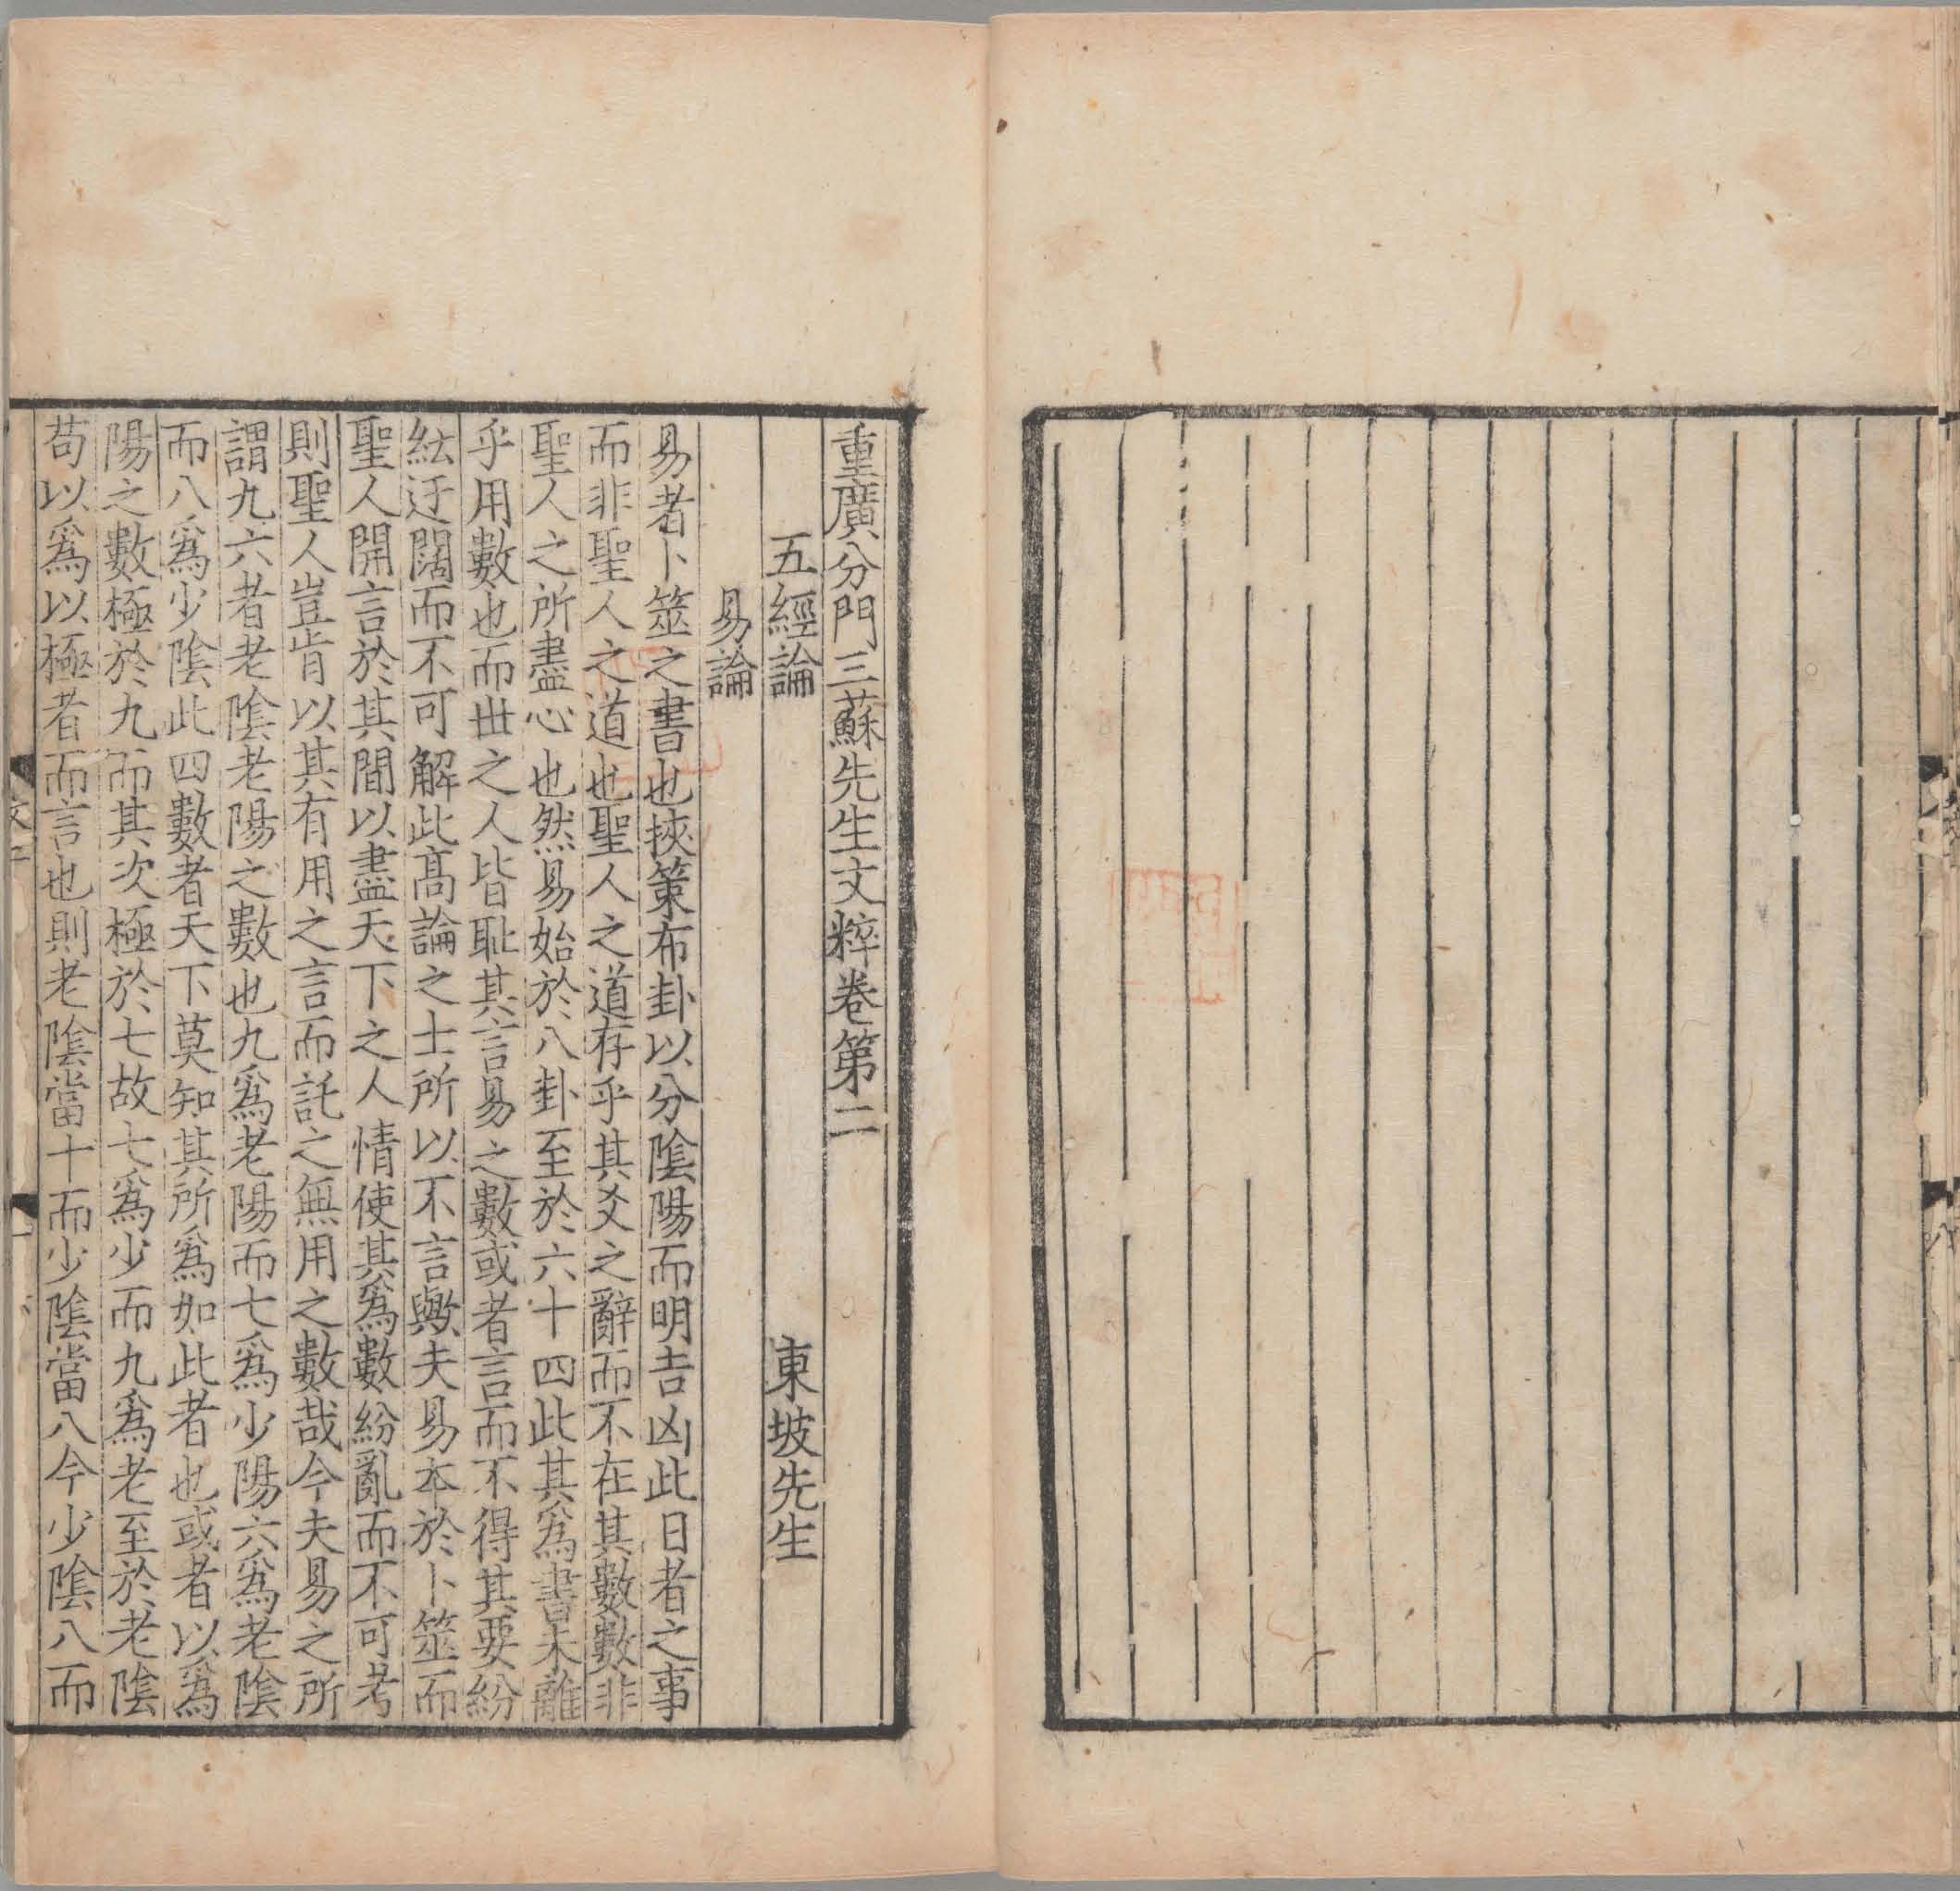 重廣分門三蘇先生文粹卷第二
五經論 東坡先生
易論
易者卜筮之書也挾策布卦以分陰陽而明吉凶此日者之事
而非聖人之道也聖人之道存乎其爻之辭而不在其數數非
聖人之所盡心也然易始於八卦至於六十四此其爲書未離
乎用數也而世之人皆耻其言易之數或者言而不得其要紛
紜迂闊而不可解此高論之士所以不言歟夫易本於卜筮而
聖人開言於其間以盡天下之人情使其爲數紛亂而不可考
則聖人豈肯以其有用之言而託之無用之數哉今夫易之所
謂九六者老陰老陽之數也九爲老陽而七爲少陽六爲老陰
而八爲少陰此四數者天下莫知其所爲如此者也或者以爲
陽之數極於九而其次極於七故七爲少而九爲老至於老陰
苟以爲以極者而言也則老陰當十而少陰當八今少陰八而